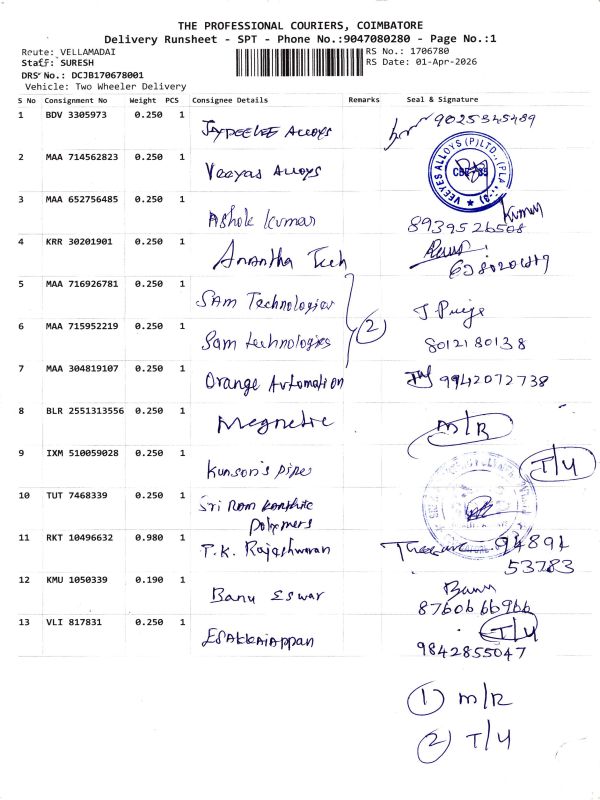 THE PROFESSIONAL COURIERS, COIMBATORE
Delivery Runsheet - SPT - Phone No.:9047080280 - Page No.:1
Route: VELLAMADAI RS No.: 1706780
Staff: SURESH RS Date: 01-Apr-2026
DRS No.: DCJB170678001
Vehicle: Two Wheeler Delivery
S No Consignment No Weight PCS Consignee Details Remarks Seal & Signature
1 BDV 3305973 0.250 1 JAYDEELEE ALLOYS 9025345489
2 MAA 714562823 0.250 1 Veeyas ALLOYS VEEYES ALLOYS (P) LTD.,
3 MAA 652756485 0.250 1 Ashok kumar Kumar 8939526508
4 KRR 30201901 0.250 1 Anantha Tech
5 MAA 716926781 0.250 1 SAM Technologies
6 MAA 715952219 0.250 1 Sam technologies (2) 8012180138
7 MAA 304819107 0.250 1 Orange Automation 9942072738
8 BLR 2551313556 0.250 1 Megnetic M/R
9 IXM 510059028 0.250 1 Kunson's pipe T/4
10 TUT 7468339 0.250 1 Sri Ram
polymers
11 RKT 10496632 0.980 1 T.K. Rajeshwaran 94891
53783
12 KMU 1050339 0.190 1 Banu Eswar Banu
8760666966
13 VLI 817831 0.250 1 ESAKKAIAPPAN T/4
9842855047
1 M/R
2 T/4